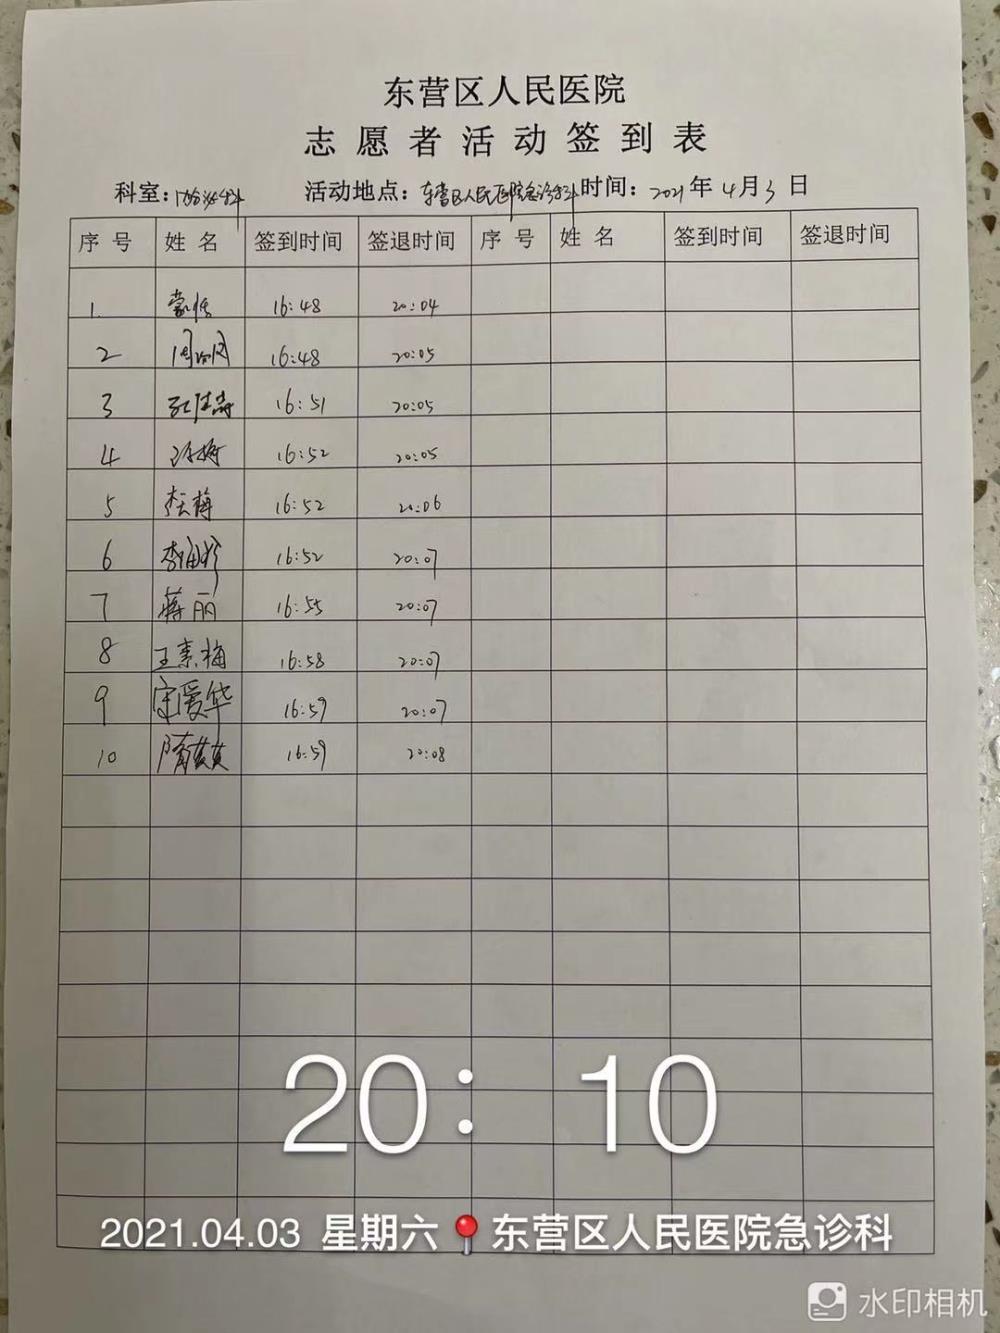 东营区人民医院
志愿者活动签到表
科室: 活动地点：东营区人民医院急诊科 时间：2021年4月3日
序号 姓名 签到时间 签退时间 序号 姓名 签到时间 签退时间
1. 16:48 20:04
2 16:48 20:05
3 16:51 20:05
4 16:52 20:05
5 16:52 20:06
6 16:52 20:07
7 蒋丽 16:55 20:07
8 王素梅 16:58 20:07
9 宋爱华 16:59 20:07
10 隋英英 16:59 20:08
20:10
2021.04.03 星期六 东营区人民医院急诊科
水印相机